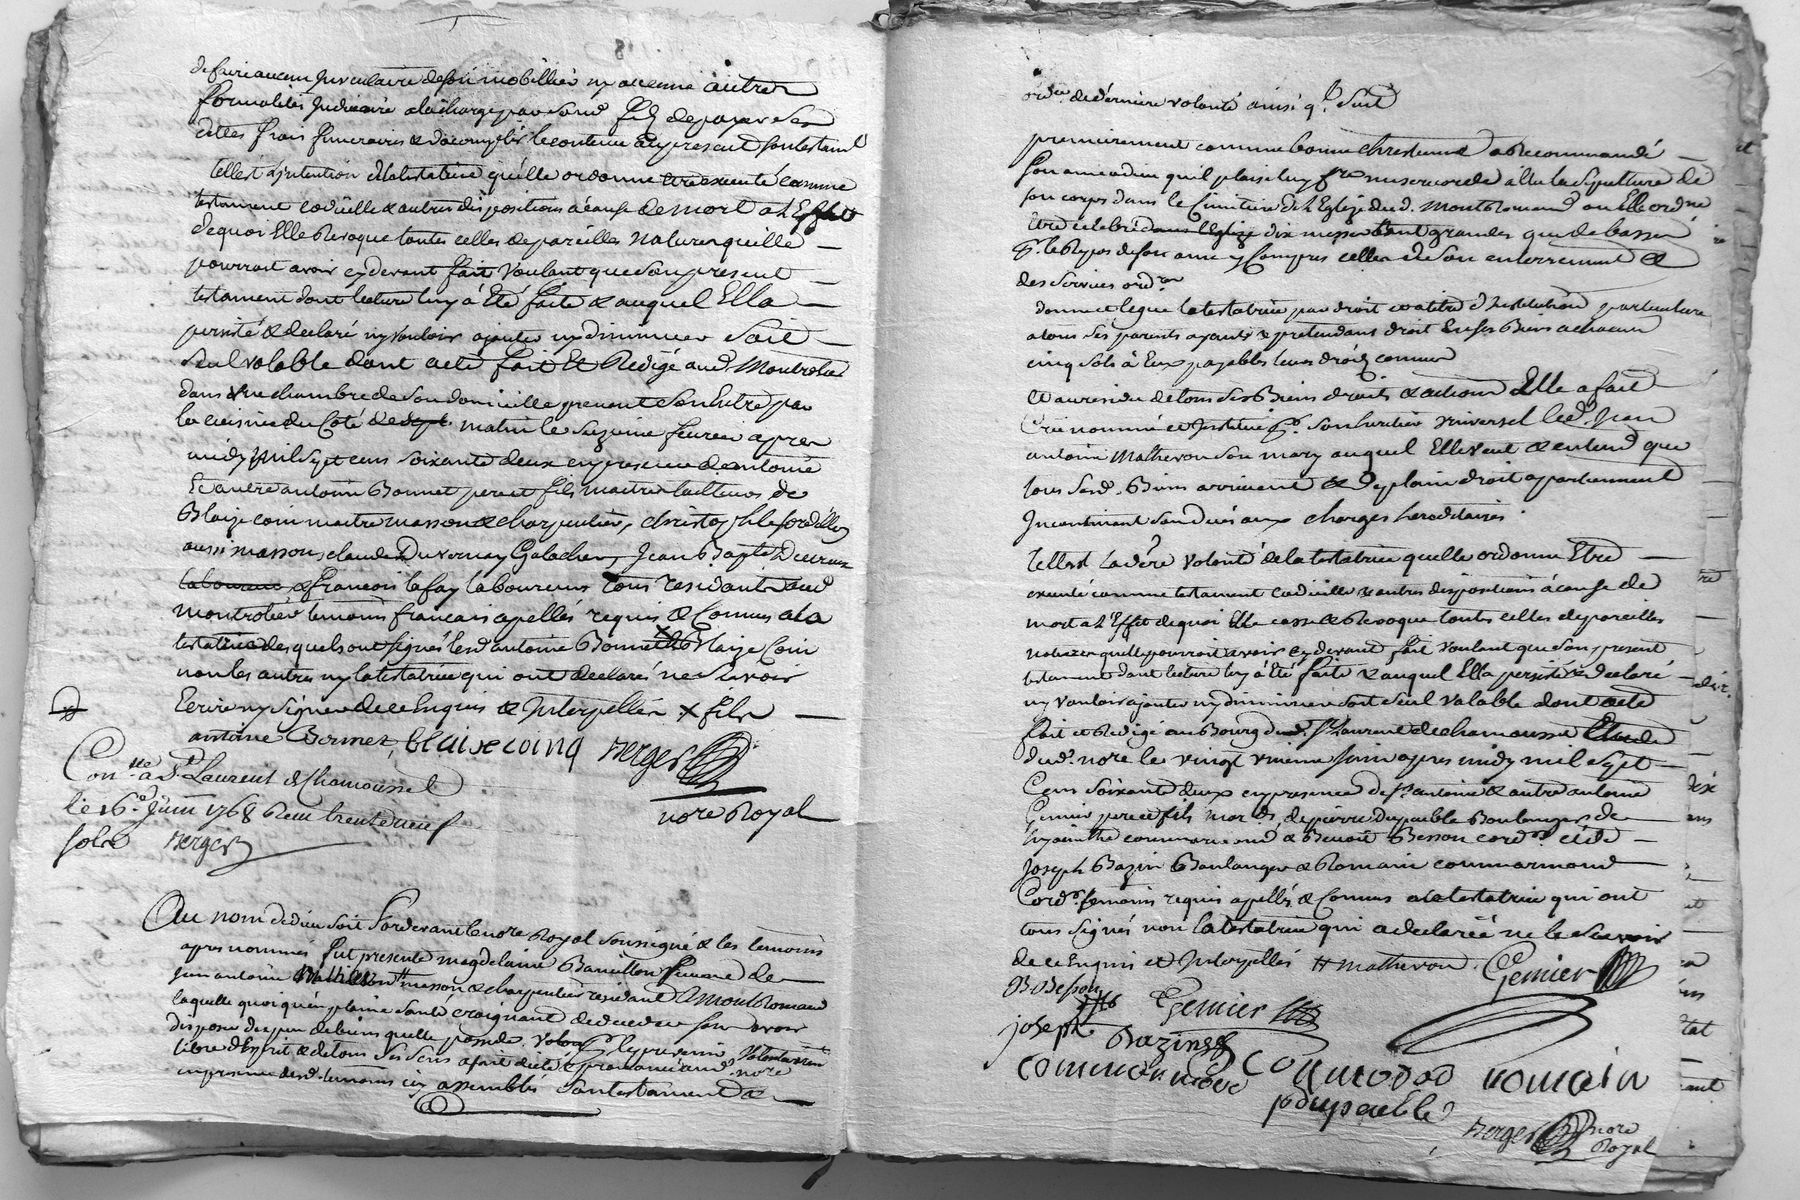 de faire aucun Inventaire de son mobillier ny aucune autres
formalités Judiciaire a la charge par sond fils de payer ses
dettes frais funeraires & d'acomplir le contenue au present son testamt
telle est L'intention de la testatrice qu'elle ordonne être executé comme
testament codicille & autres dispositions à cause de mort a L'Effet
dequoi Elle Revoque toutes celles de pareilles Natures quelle
pourrait avoir cy devant fait Voulant que son present
testament dont lecture luy à Eté faite & auquel Ella
persisté & declaré ny vouloir ajouter ny diminuer soit
seul valable dont acte fait Et Redigé aud Montrotier
dans une chambre de son domicille prenant son Entrée par
la cuisine du Coté de matin le seizieme feurier apres
midy mil sept cens soixante deux en presence de antoine
& autre antoine Bonnet pere et fils maitres tailleurs de
Blaize coin maitre masson & charpentier, christophle
aussi masson, claude Duvernay Galocher, Jean Bapte Ducreux
& francois lafay laboureurs tous residants aud
montrotier temoins francais apellés requis & Connus a la
testatrice desquels ont signés lesd antoine Bonnet & Blaize Coin
non les autres ny la testatrice qui ont declarés ne Scavoir
Ecrire ny Signer de ce Enquis & Interpellés x fils
antoine Bonnet, blaise coing Berger
Conlle a St Laurent de Chamousset
le 16e Juin 1768 Reçu trente neuf
sols Berger
nore Royal
Au nom de dieu soit Pardevant le nore Royal soussigné & les temoins
apres nommés fut presente magdelaine Barcillon femme de
Jean antoine masson & charpentier residant a Montromand
laquelle quoi qu'en pleine santé craignant de deceder sans avoir
disposé du peu de biens quelle possede. Voulant le prevenir Volontairemt
libre d'Esprit & de tous ses sens a fait dicté & prononcé aud. nore
en presence desd. temoins icy assemblés son testament &
ordce de derniere volonté ainsi q. suit
premierement comme bonne chrestienne a Recommandé
son ame a dieu qu'il plaise luy fre misericorde à Elu la sepulture de
son corps dans le Cimitiere de L'Eglize dud. Montromand ou Elle ordne
être celebré dans L'Eglize dix messes tant grandes que de basses
pr. le Repos de son ame y Compris celles de son enterrement &
des services ordres
donne et legue la testatrice par droit et a titre d'Institution particuliere
a tous ses parents ayants & pretendans droit En ses Biens a chacun
cinq sols à Eux payables leurs droits connus
Et au residu de tous ses Biens droits & actions Elle a fait
Crée nommé et Institué pr. son heritier universel led. Jean
antoine Mathevon son mary auquel Elle veut & entend que
tous sesd. Biens arrivent & de plain droit apartiennent
Incontinant son decés aux charges hereditaires
telle est La dere Volonté de la testatrice quelle ordonne Etre
executé comme testament codicille & autres dispositions à cause de
mort a L'Effet dequoi Elle casse & Revoque toutes celles de pareilles
natures quelle pourroit avoir cy devant fait voulant que son present
testament dont lecture luy à Eté faite & auquel Ella persisté & declaré
ny vouloir ajouter ny diminuer soit seul valable dont acte
fait et Redigé au Bourg dud. St Laurent de chamousset Etude
dud. nore le vingt unieme Juin apres midy mil sept
Cens soixante deux en presence de sr. antoine & autre antoine
Genier pere et fils mards, de pierre Dupeuble Boulanger de
hyacinthe commarmond & Benoit Besson cordrs. & de
Joseph Bazin Boulanger & Romain commarmond
Cordr. temoins requis apellés & Connus a la testatrice qui ont
tous signés non la testatrice qui a declarée ne le scavoir
de ce Enquis et Interpellés # mathevon. Genier
B Besson Genier
joseph Bazin
commarmond Commarmond romain
p dupeuble
Berger nore
Royal